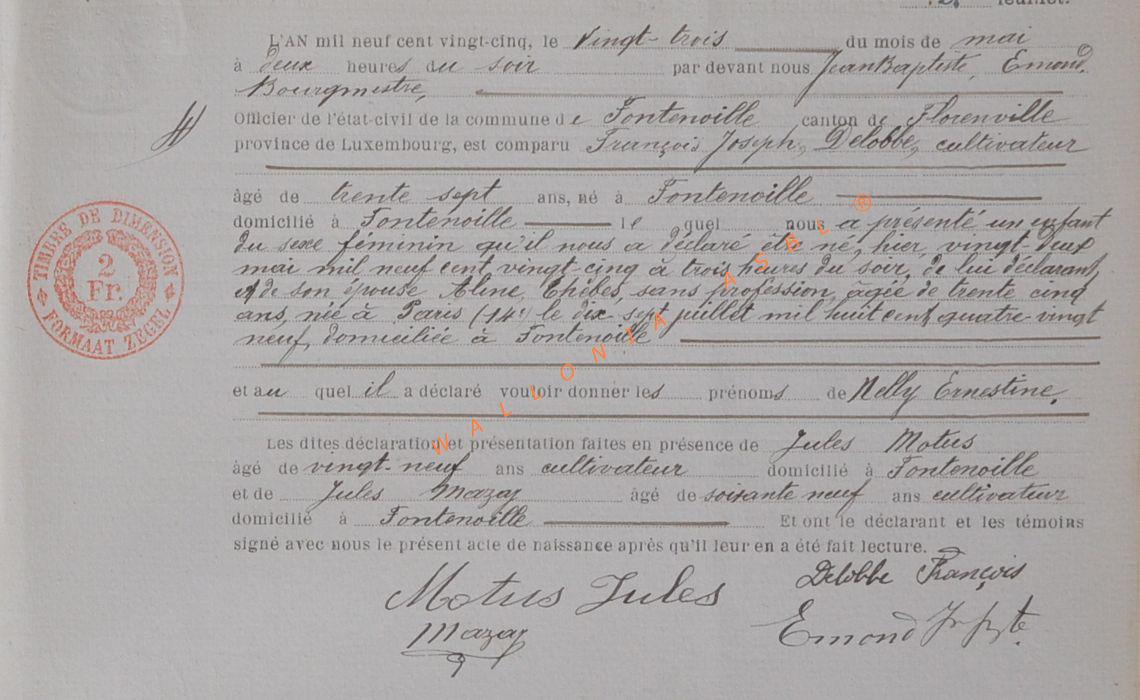 feuillet.
L'AN mil neuf cent vingt-cinq, le Vingt-trois du mois de mai
à deux heures du soir par devant nous Jean Baptiste, Emond,
Bourgmestre,
Officier de l'état-civil de la commune de Fontenoille canton de Florenville
province de Luxembourg, est comparu François Joseph, Delobbe, cultivateur
âgé de trente sept ans, né à Fontenoille
domicilié à Fontenoille le quel nous a présenté un enfant
du sexe féminin qu'il nous a déclaré être né, hier, vingt-deux
mai mil neuf cent vingt-cinq à trois heures du soir, de lui déclarant,
et de son épouse Aline, Thèbes, sans profession, âgée de trente cinq
ans, née à Paris (14e) le dix-sept juillet mil huit cent quatre-vingt
neuf, domiciliée à Fontenoille
et au quel il a déclaré vouloir donner les prénoms de Nelly Ernestine,
Les dites déclaration et présentation faites en présence de Jules Motus
âgé de vingt-neuf ans cultivateur domicilié à Fontenoille
et de Jules Mazay âgé de soixante neuf ans cultivateur
domicilié à Fontenoille Et ont le déclarant et les témoins
signé avec nous le présent acte de naissance après qu'il leur en a été fait lecture.
Delobbe François
Motus Jules
Mazay
Emond
TIMBRE DE DIMENSION
2
Fr.
FORMAAT ZEGEL
WALLONIA ASBL ®